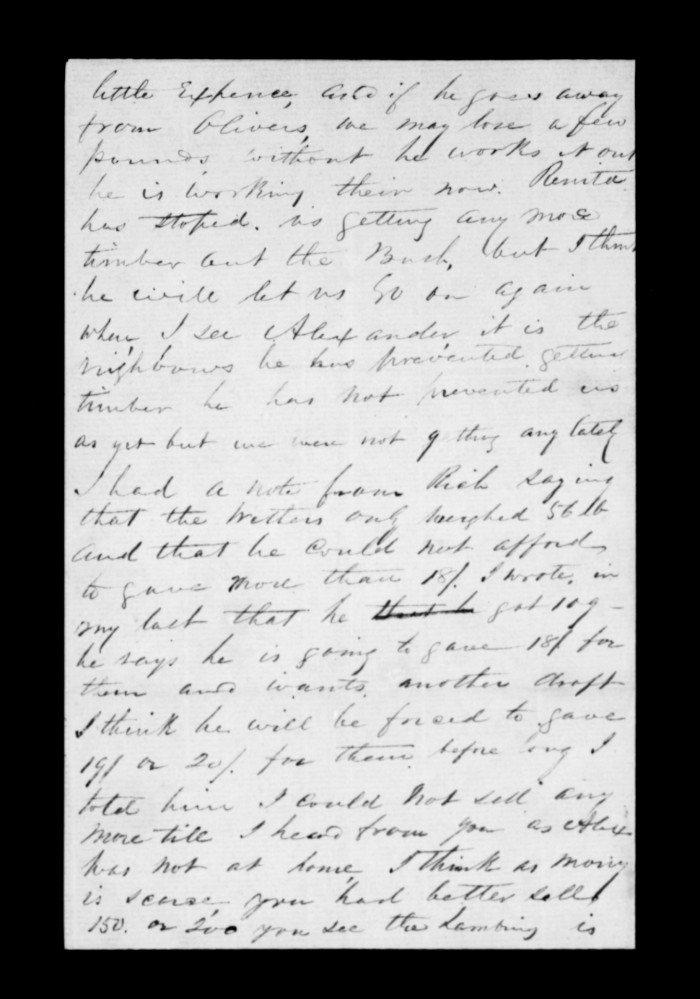 little Expence, and if he goes away
from Olivers, we may lose a few
pounds without he works it out
he is working their now. Renata
has stoped. us getting any more
timber out the Bush, but I think
he will let us Go on again
when I see Alexander it is the
nighbours he has prevented getting
timber he has not prevented us
as yet but we were not getting any lately
I had a note from Rich saying
that the Wethers only weighed 56 lb
and that he Could not afford
to gave more than 18/. I wrote, in
my last that he got 109 -
he says he is going to gave 18/ for
them and wants another draft
I think he will be forsed to gave
19/ or 20/. for them before long I
told him I Could Not sell any
more till I heard from you as Alex
was not at home, I think as mony
is scarse, you had better sell
150. or 200 you see the Lambing is